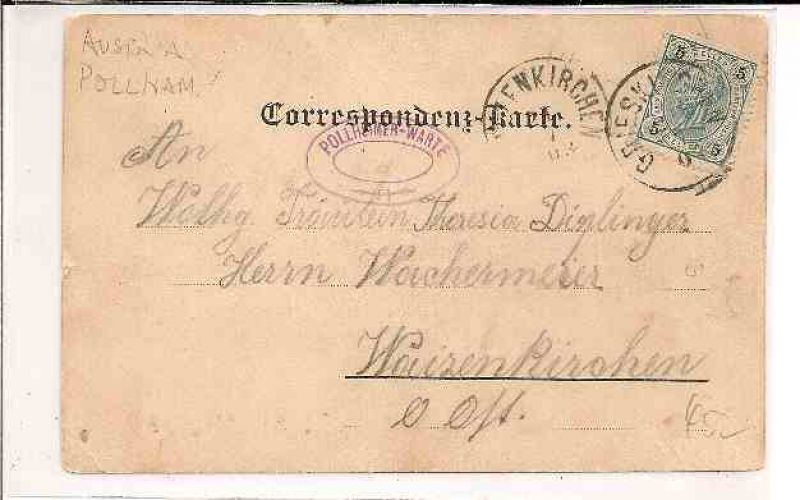 AUSTRIA
POLLHAM
Correspondenz-Karte.
ENKIRCHEN
GRIESKI
5 5
5 5
POLLHEIMER-WARTE
An
Wolhg Fräulein Theresia Diplinger
Herrn Wachermeier
Waizenkirchen
O Öst.